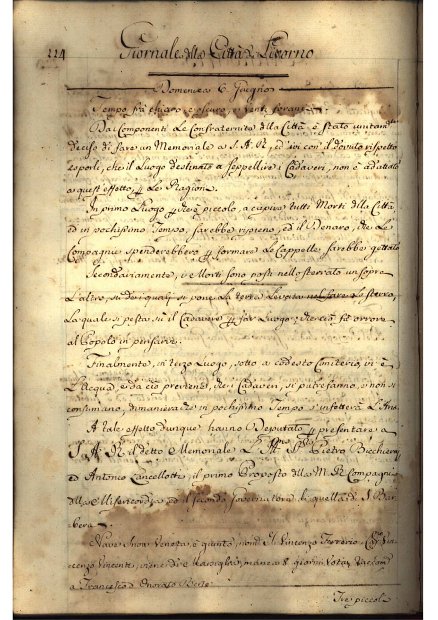 224
Giornale della Città di Livorno
Domenica 6. Giugno
Tempo frà chiaro e oscuro, e venti forani
Da Componenti le Confraternite dlla Città è stato unitamte
deciso di fare un Memoriale a S. A. R., ed ivi con il dovuto rispetto
esporli, che il Luogo destinato a seppellire i Cadaveri, non è adattato
a quest'effetto, p le Ragioni
In primo Luogo p che è piccolo, a capire tutti Morti dlla Città,
ed in pochissimo Tempo, sarebbe ripieno, ed il Denaro, che le
Compagnie spenderebbero p formare le Cappelle sarebbe gettato
Secondariamente, i Morti sono posti nello sterrato un sopra
L'altro, su dei quali si pone la terra levata nel fare lo sterro,
la quale si pesta su il Cadavere p far Luogo, che ciò fà orrore
al Popolo in pensare.
Finalmente, in terzo Luogo, sotto a codesto Cimiterio, vi è
l'Acqua, e da ciò previene, che i Cadaveri, si putrefanno, e non si
consumano, dimanierache in pochissimo Tempo s'infetterà l'Aria
A tale effetto dunque hanno Deputato p presentare a
S. A. R. il detto Memoriale Pietro
ed Antonio Lancellotti, il primo Proposto dlla M. R. Compagnia
dlla Misericordia, ed il secondo Governatore di quella di S. Bar
bera
Nave Veneta, è giunta, Vincenzo
Vincente, viene di Marsiglia, manca 8 giorni,
a Francesco d'Onorato Berte
Tre piccoli